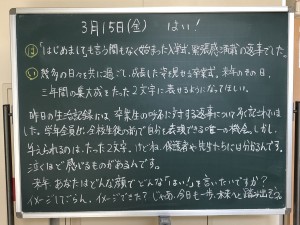 3月15日(金) はい!
は「はじめまして」も言う間もなく始まった入学式、緊張感満載の返事でした。
い 幾多の日々を共に過ごし、成長した姿を見せる卒業式。来年のその日、
三年間の集大成をたった2文字に表せるようになってほしい。
昨日の生活記録には、卒業生の呼名に対する返事について多く記されていま
した。学年全員が、全校生徒の前で自分を表現できる唯一の機会。しかし、
与えられるのは、たった2文字。けどね、保護者や先生たちには分かるんです。
泣くほど感じるものがあるんです。
来年、あなたはどんな顔でどんな「はい!」を言いたいですか?
イメージしてごらん。イメージできた?じゃあ、今日も一歩、未来へと踏み出そう。